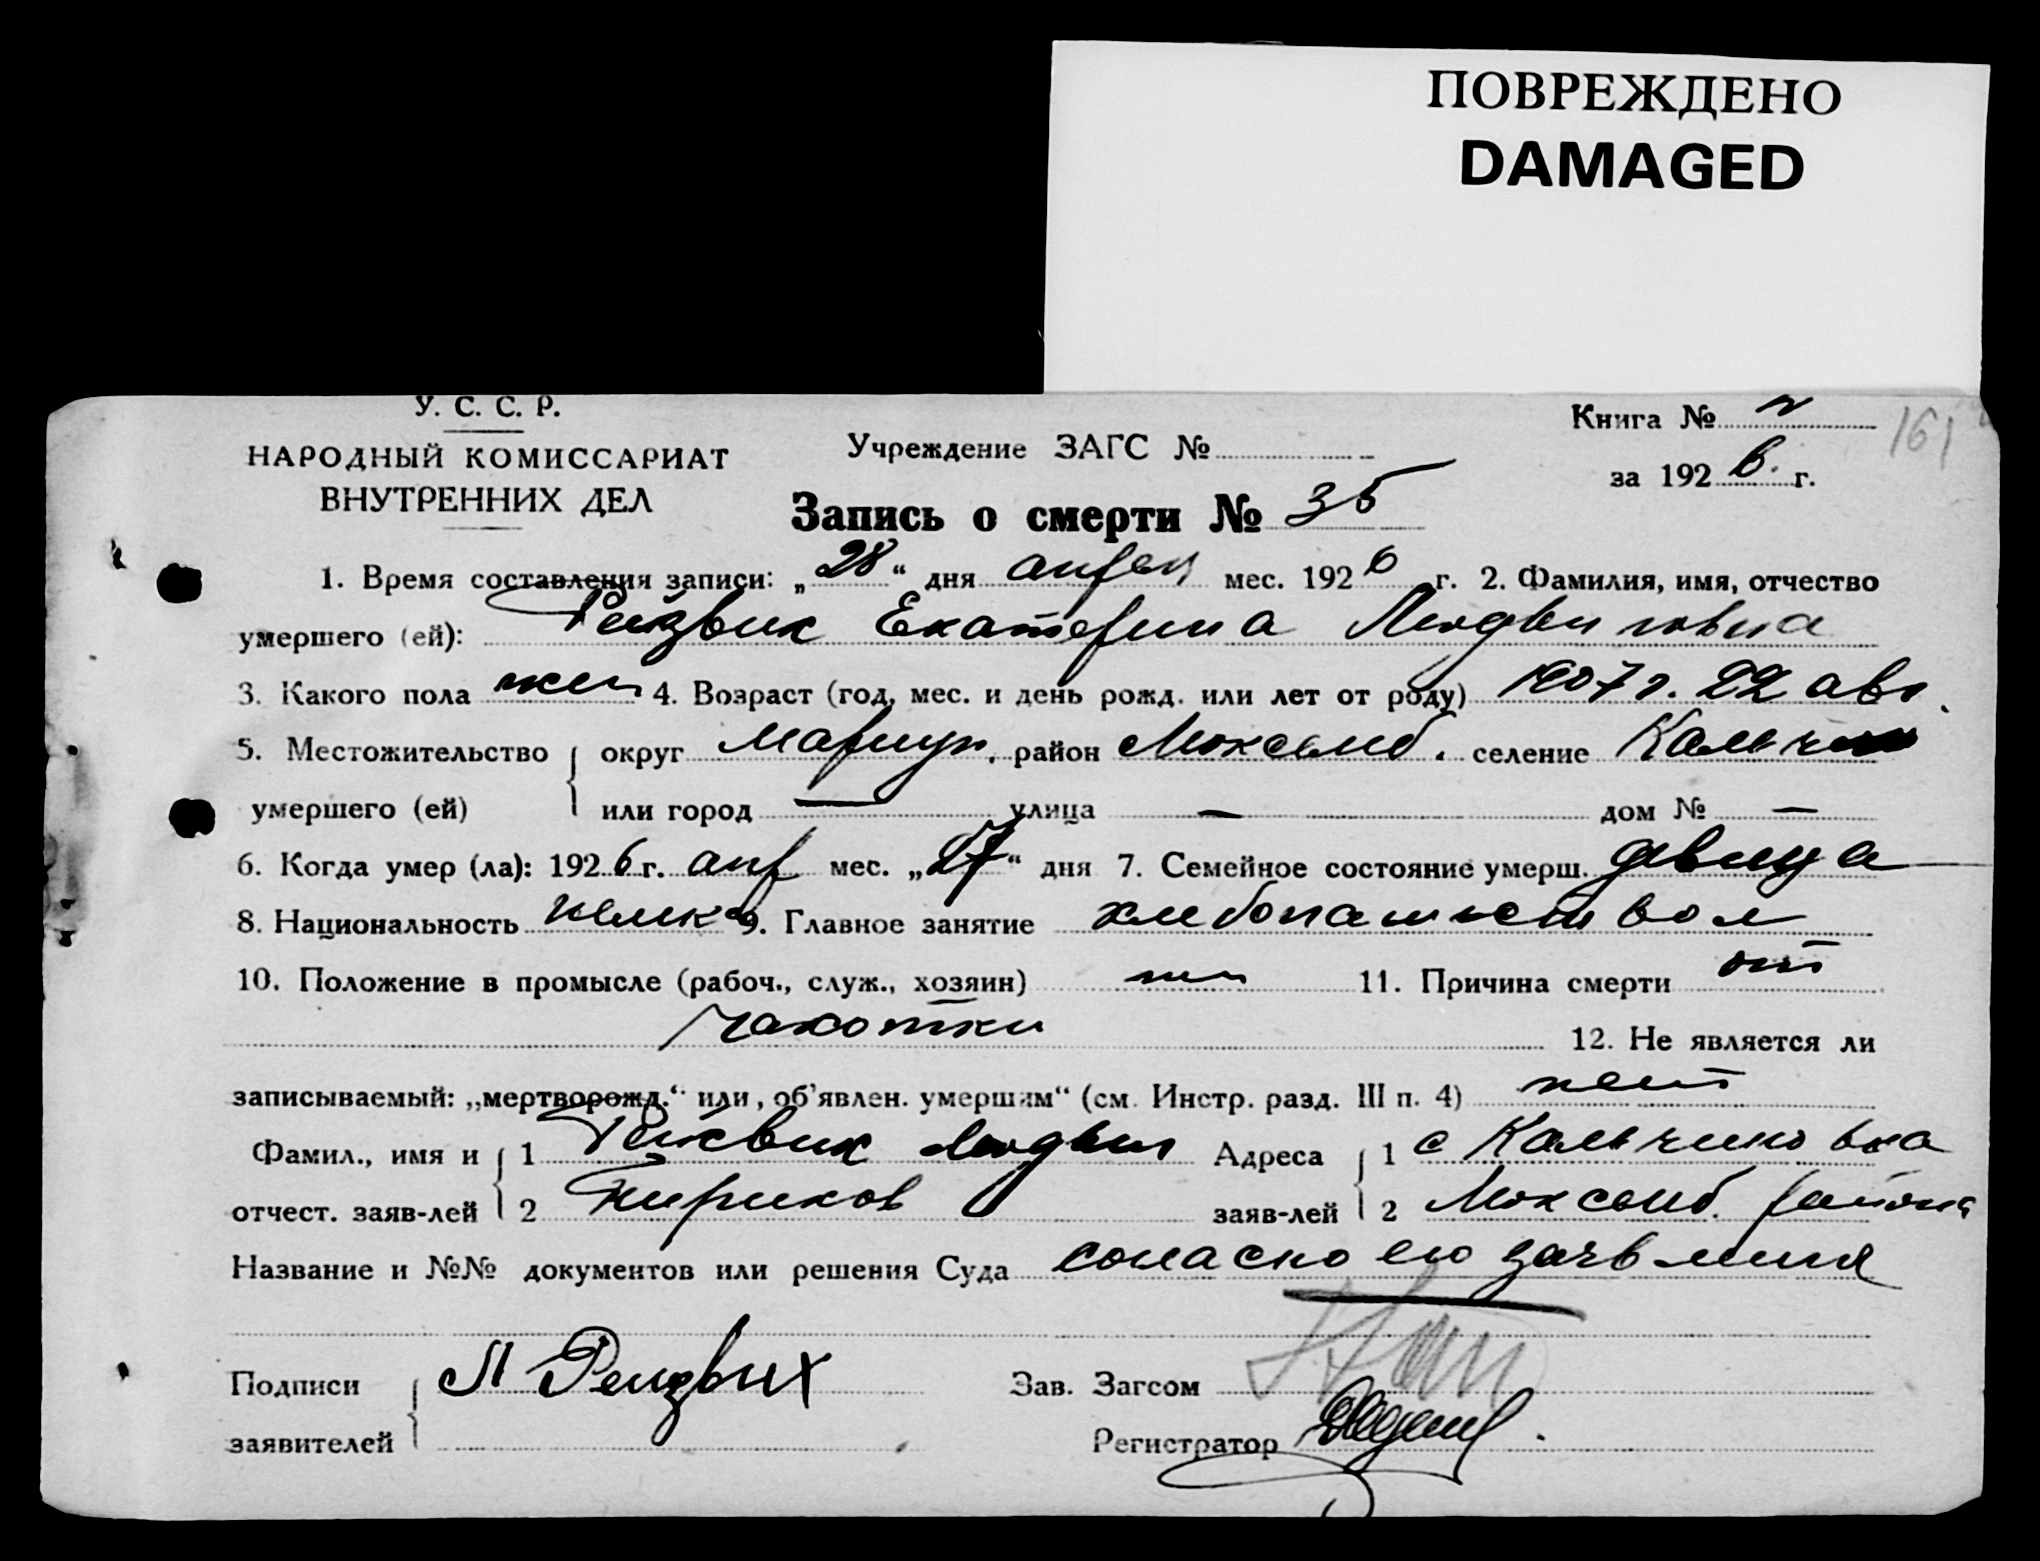 ПОВРЕЖДЕНО
DAMAGED
У. С. С. Р.
НАРОДНЫЙ КОМИССАРИАТ
ВНУТРЕННИХ ДЕЛ
Учреждение ЗАГС №
Книга № 2
за 1926. г.
161
Запись о смерти № 35
1. Время составления записи: „28“ дня апрел мес. 1926 г. 2. Фамилия, имя, отчество
умершего (ей): Рейзвик Екатерина Людвиговна
3. Какого пола жен 4. Возраст (год, мес. и день рожд. или лет от роду) 1907 г. 22 авг.
5. Местожительство округ Мариуп. район Люксемб. селение Кальчин
умершего (ей) или город — улица — дом № —
6. Когда умер (ла): 1926 г. апр мес. „27“ дня 7. Семейное состояние умерш. девица
8. Национальность немка 9. Главное занятие хлебопашеством
10. Положение в промысле (рабоч., служ., хозяин) 11. Причина смерти от
чахотки
12. Не является ли
записываемый: „мертворожд.“ или „об'явлен. умершим“ (см. Инстр. разд. III п. 4) нет
Фамил., имя и 1 Рейзвик Людвиг Адреса 1 с Кальчиновка
отчест. заяв-лей 2 заяв-лей 2 Люксемб. района
Название и №№ документов или решения Суда согласно его заявления
Подписи Л Рейзвих Зав. Загсом
заявителей Регистратор